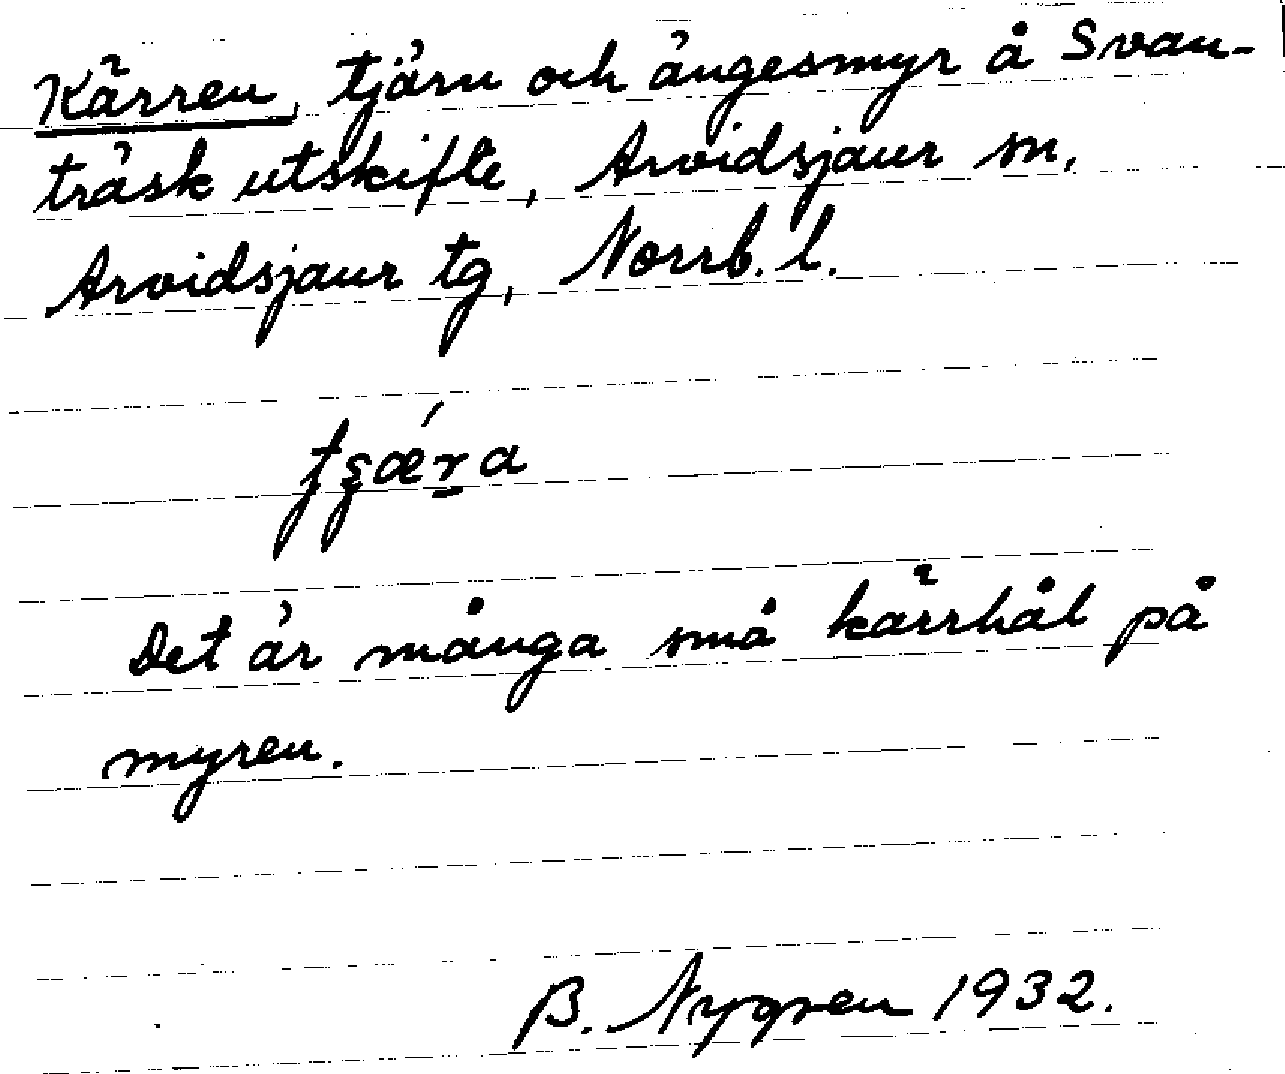 Kärren, tjärn och ängesmyr å Svan-
träsk utskifte, Arvidsjaur sn,
Arvidsjaur tg, Norrb. l.
Det är många små kärrhål på
myren.
B. Nygren 1932.